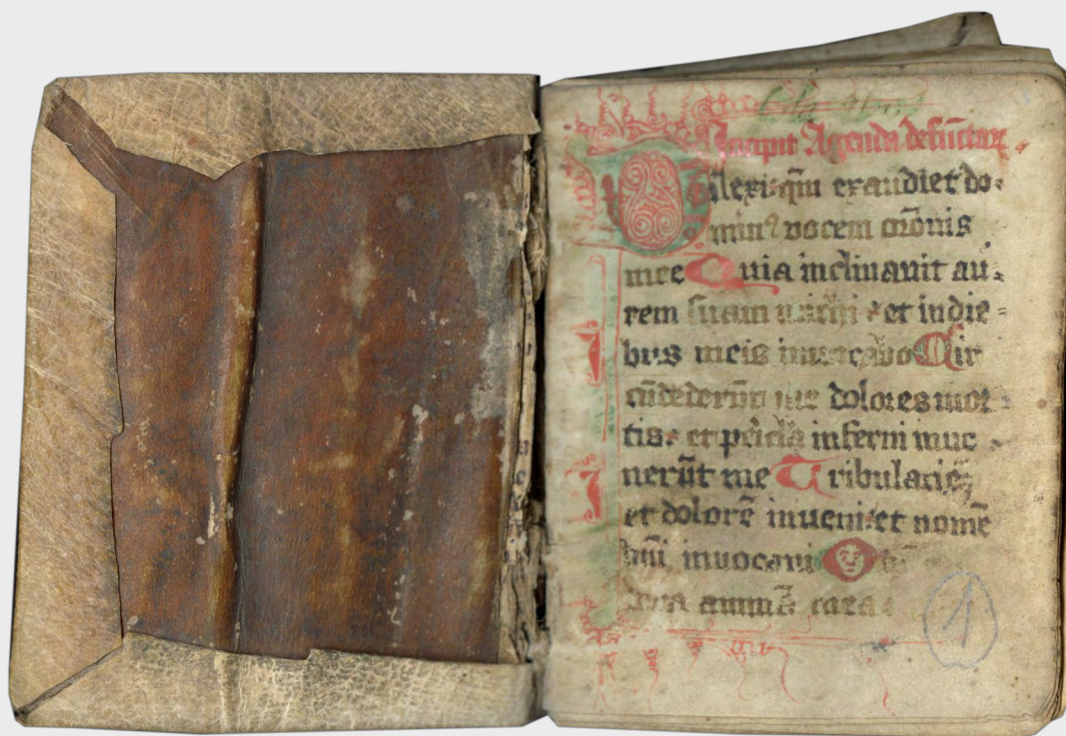 Incipit Agenda defūctoꝝ
Dilexi qm̄ exaudiet do
minꝰ vocem orōnis
mee Quia inclinauit au
rem suam michi et in die
bus meis inuocabo Cir
cūdederūt me dolores mor
tis et pericla inferni inue
nerūt me Tribulacioē
et dolorē inueni et nomē
dn̄i inuocaui O
animā
1